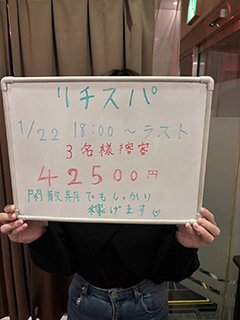 リチスパ
1/22 18:00〜ラスト
3名様接客
42500円
閑散期でもしっかり
稼げます♡